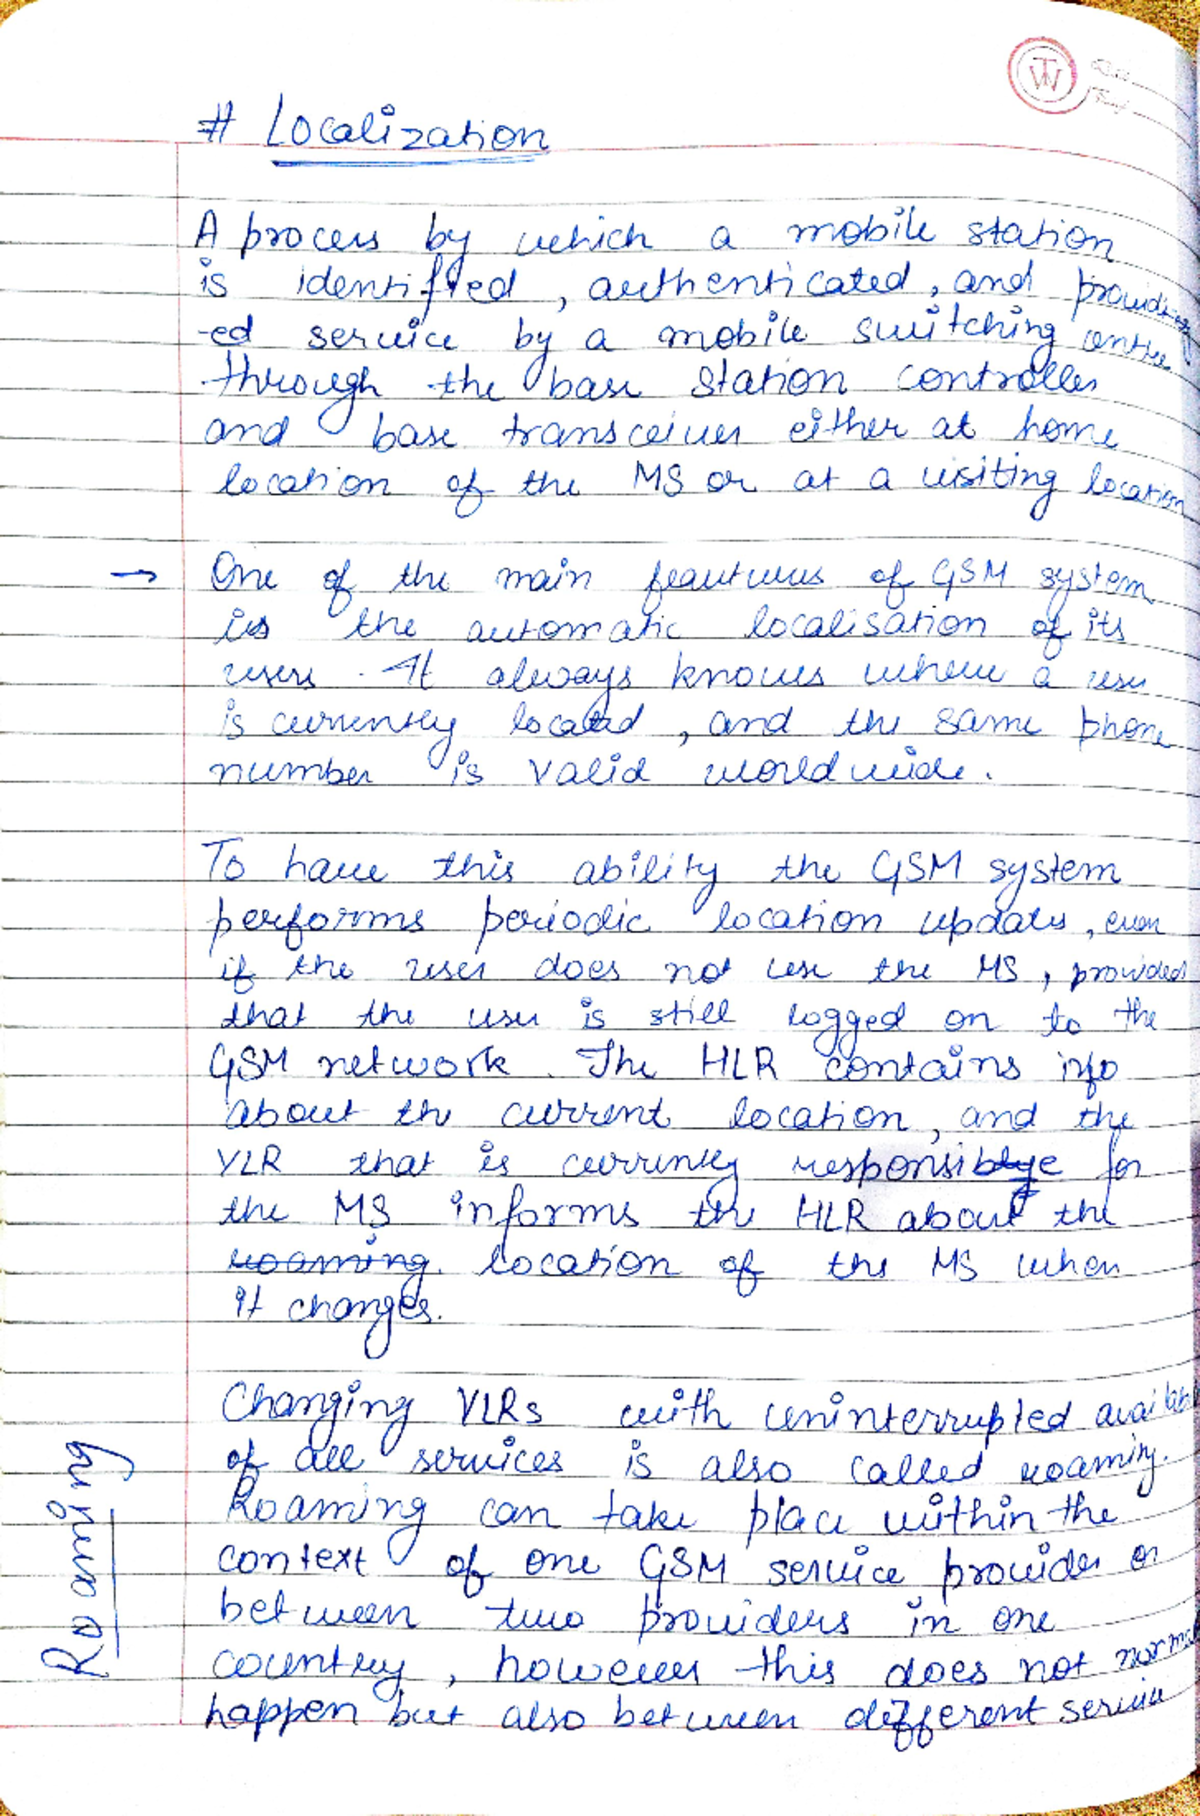 # Localization
A process by which a mobile station
is identified, authenticated, and provid-
-ed service by a mobile switching centre
through the base station controller
and base transceiver either at home
location of the MS or at a visiting location
→ One of the main feautures of GSM system
is the automatic localisation of its
users. It always knows where a user
is currently located, and the same phone
number is valid worldwide.
To have this ability the GSM system
performs periodic location updates, even
if the user does not use the MS, provided
that the user is still logged on to the
GSM network. The HLR contains info
about the current location, and the
VLR that is currently responsible for
the MS informs the HLR about the
roaming. location of the MS when
it changes.
Roaming
Changing VLRs with uninterrupted
of all services is also called roaming.
Roaming can take place within the
context of one GSM service provider or
between two providers in one
country, however this does not
happen but also between different service